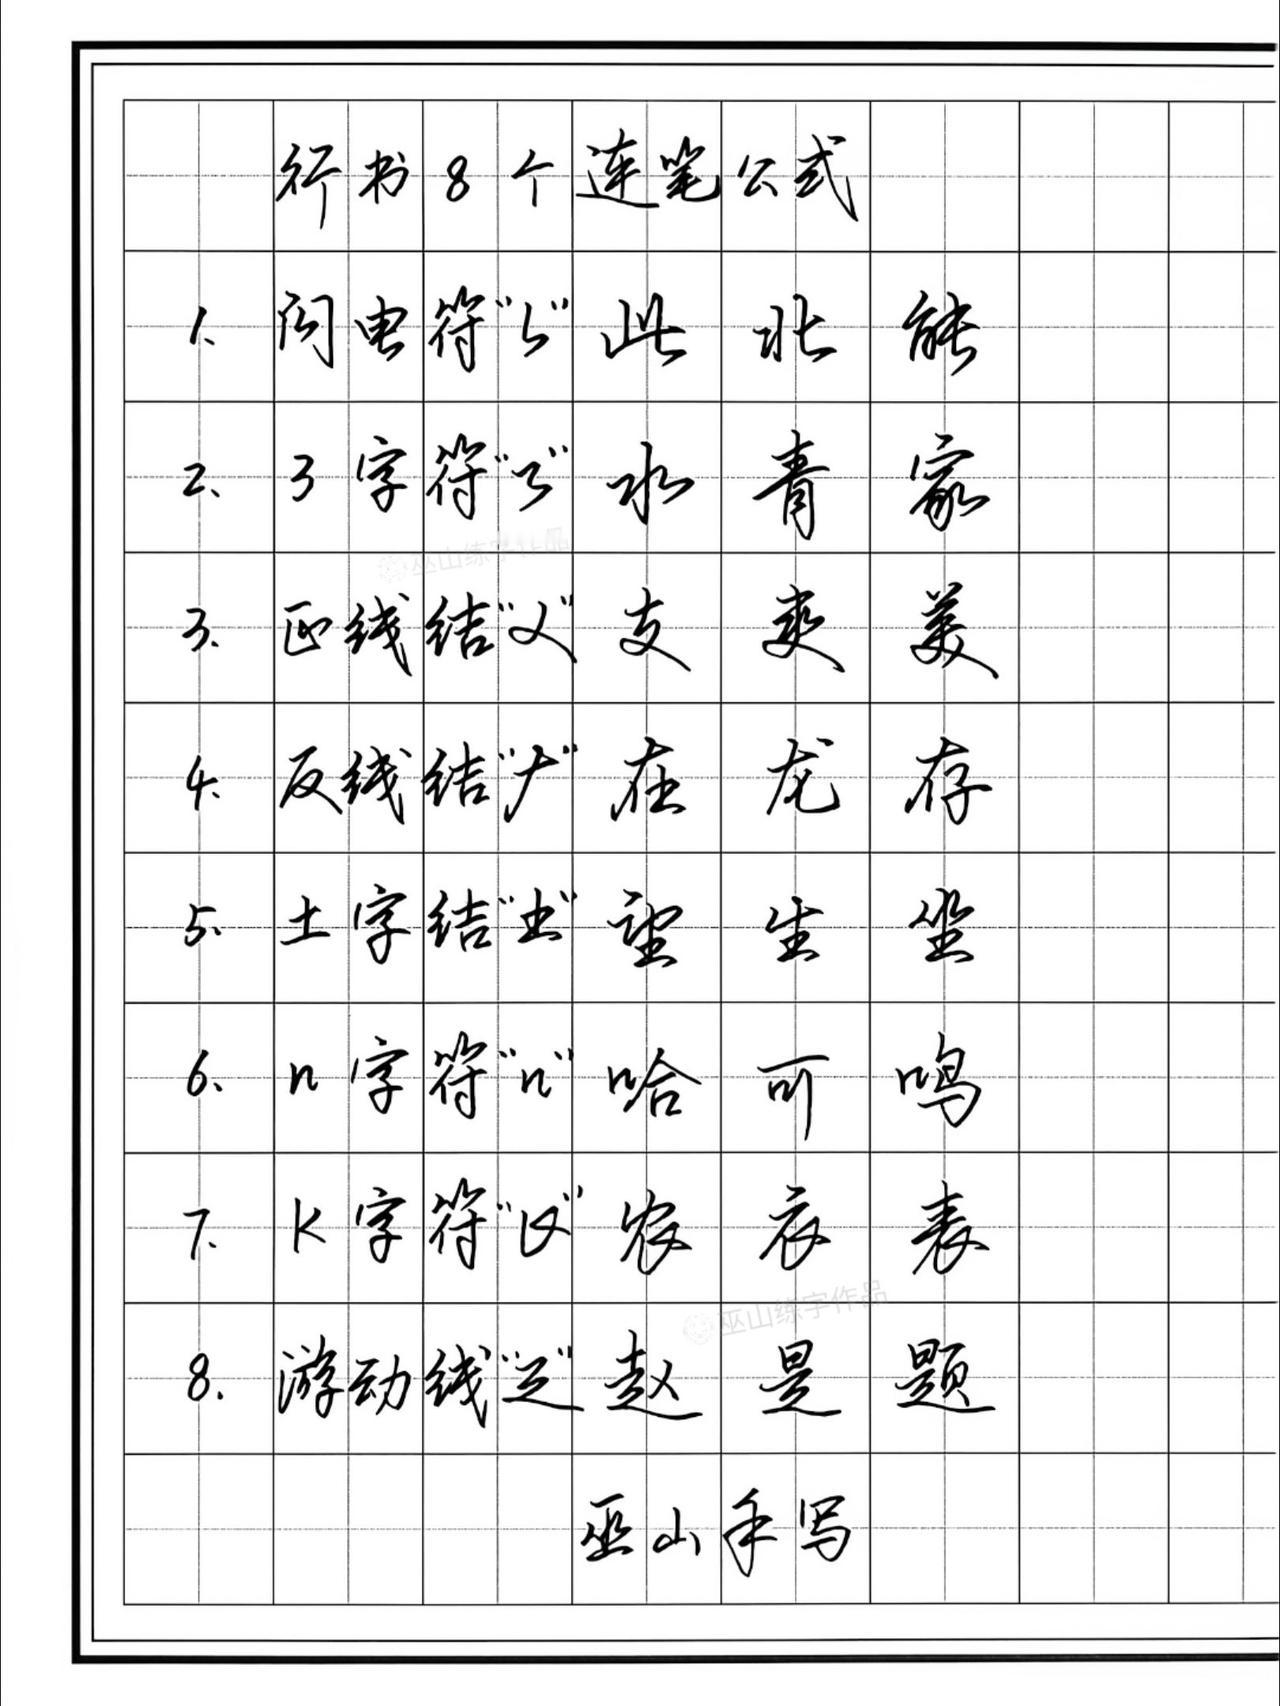 行书8个连笔公式
1、闪电符“ㄣ”此北能
2、3字符“3”水青家
巫山练字作品
3、正线结“乂”支爽美
4、反线结“ナ”在龙存
5、土字结“土”望生坐
6、n字符“n”哈可鸣
7、K字符“K”农衣表
巫山练字作品
8、游动线“之”赵是题
巫山手写